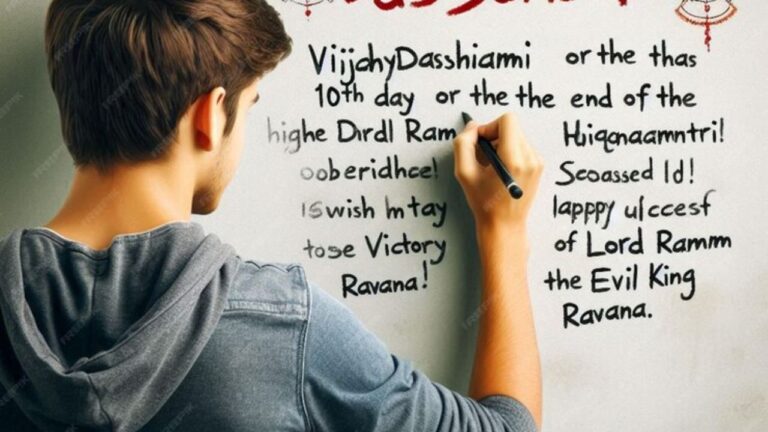 VijchyDasshiami or the thas
10th day or the the end of the
highe Dirdl Ram Huiqenaamntri!
ooberidhce! Scoassed ld!
iswish mtay lapppy ulccesf
tose Victory of Lord Ramm
Ravana! the Evil King
Ravana.